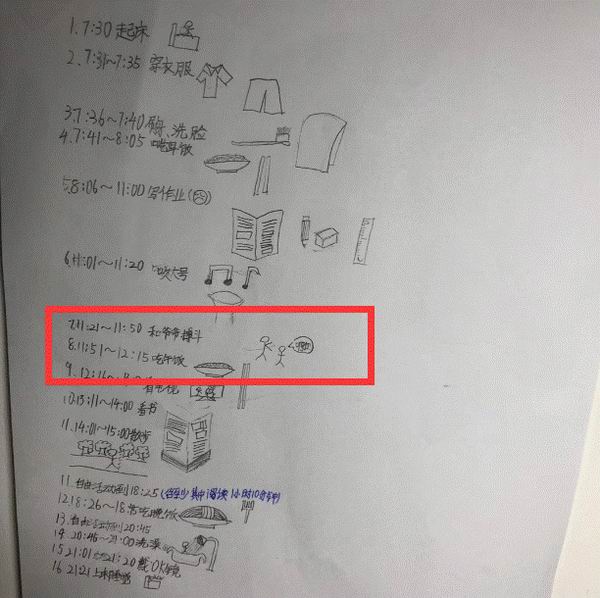 1.7:30起床
2.7:31~7:35 穿衣服
3.7:36~7:40 刷牙、洗脸
4.7:41~8:05 吃早饭
5.8:06~11:00写作业
6.11:01~11:20 吹大号
7.11:21~11:50 和爷爷摔斗
8.11:51~12:15吃午饭
9.12:16~ 看电视
10.13:11~14:00 看书
11.14:01~15:00散步
11.自由活动到18:25(至少其中阅读1小时10分钟)
12.18:26~18 吃晚饭
13.自由活动到20:45
14.20:46~21:00洗澡
15.21:01~21:20戴OK镜
16.21:21上床睡觉